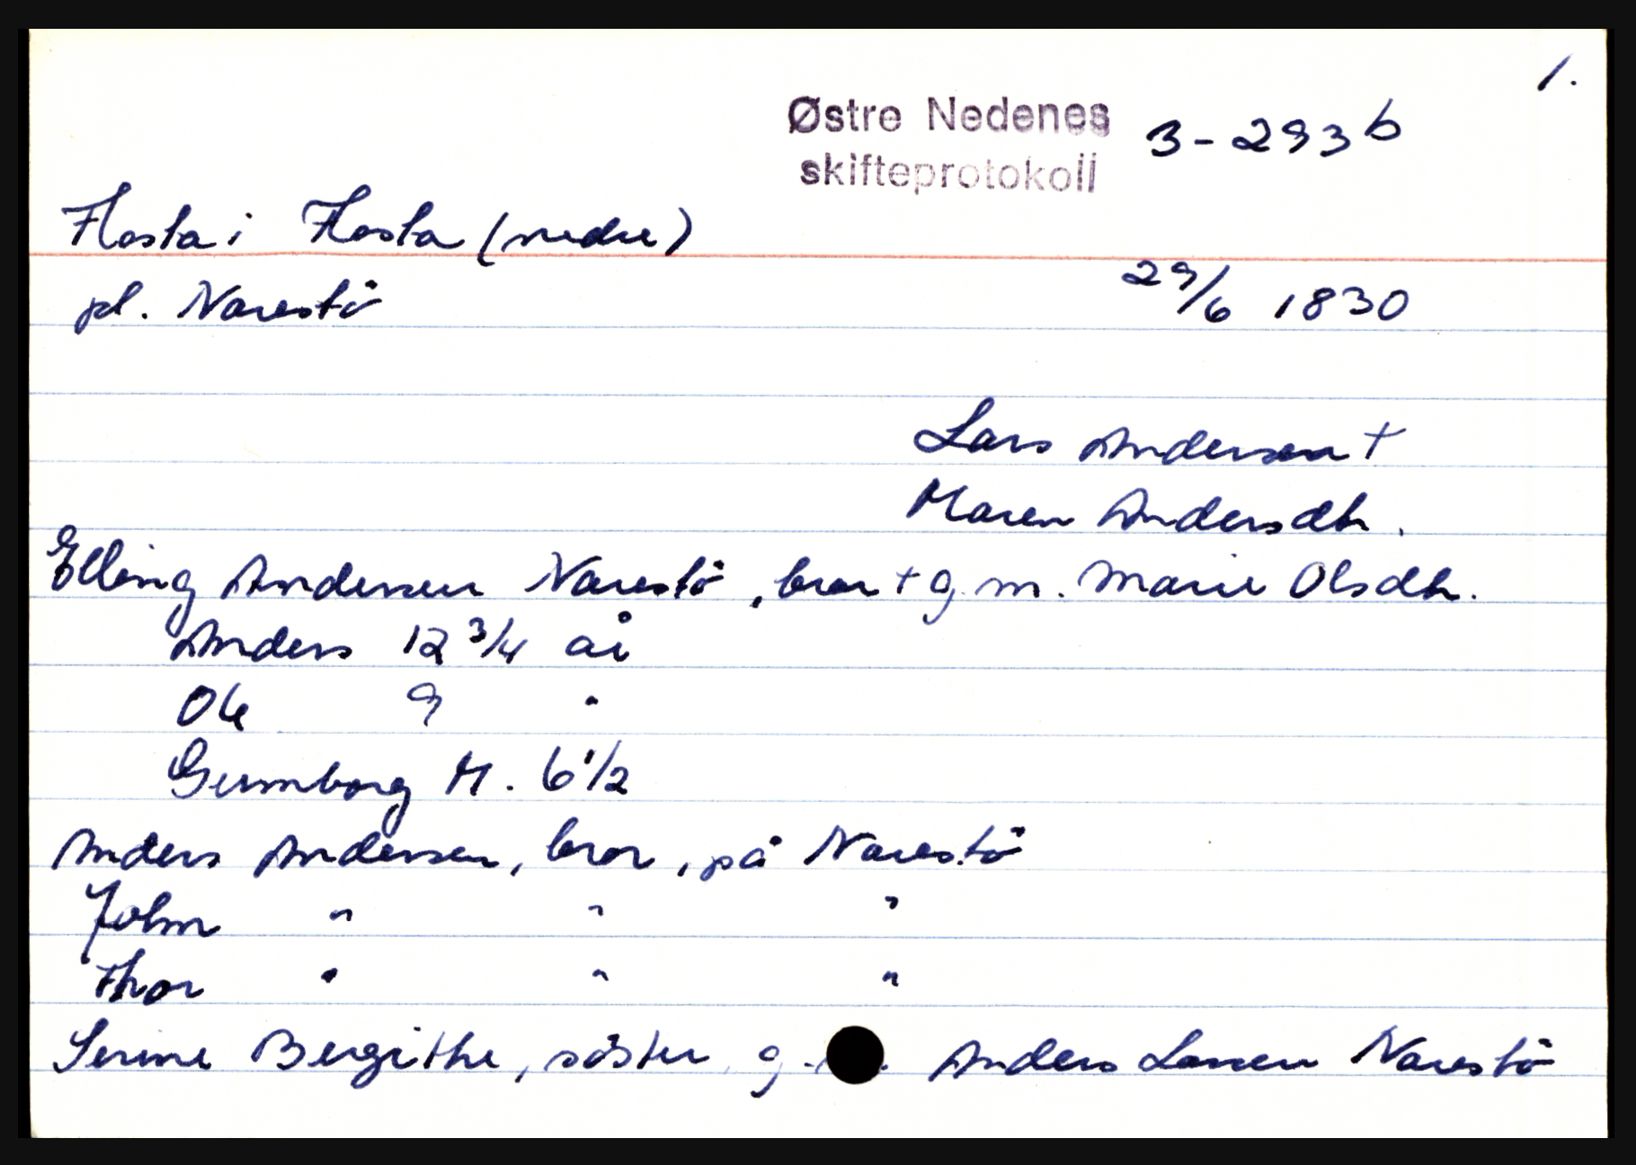 1.
Østre Nedenes
skifteprotokoll
3-293b
Flosta i Flosta (nedre)
pl. Narestö
29/6 1830
Lars Andersen †
Maren Andersdtr.
Elling Andersen Narestö, bror † g. m. Marie Olsdtr.
Anders 12 3/4 år
Ole 9 "
Gunnborg M. 6 1/2
Anders Andersen, bror, på Narestö
John " " "
Thor " " "
Serine Bergithe, söster, g. Anders Larsen Narestö